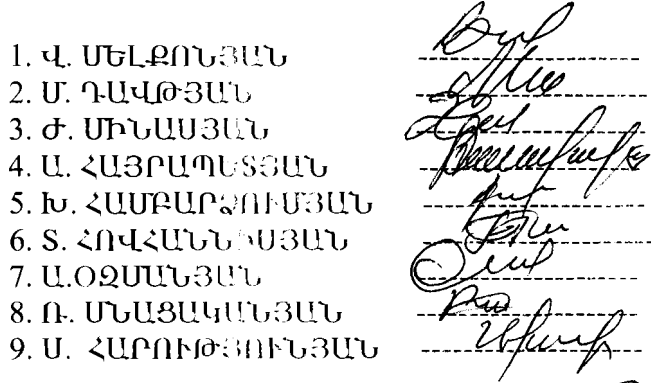 1. Վ. ՄԵԼՔՈՆՅԱՆ
2. Մ. ԴԱՎԹՅԱՆ
3. Ժ. ՄԻՆԱՍՅԱՆ
4. Ա. ՀԱՅՐԱՊԵՏՅԱՆ
5. Խ. ՀԱՄԲԱՐՁՈՒՄՅԱՆ
6. Տ. ՀՈՎՀԱՆՆԻՍՅԱՆ
7. Ա.ՕՉՄԱՆՅԱՆ
8. Ռ. ՄՆԱՑԱԿԱՆՅԱՆ
9. Ս. ՀԱՐՈՒԹՅՈՒՆՅԱՆ